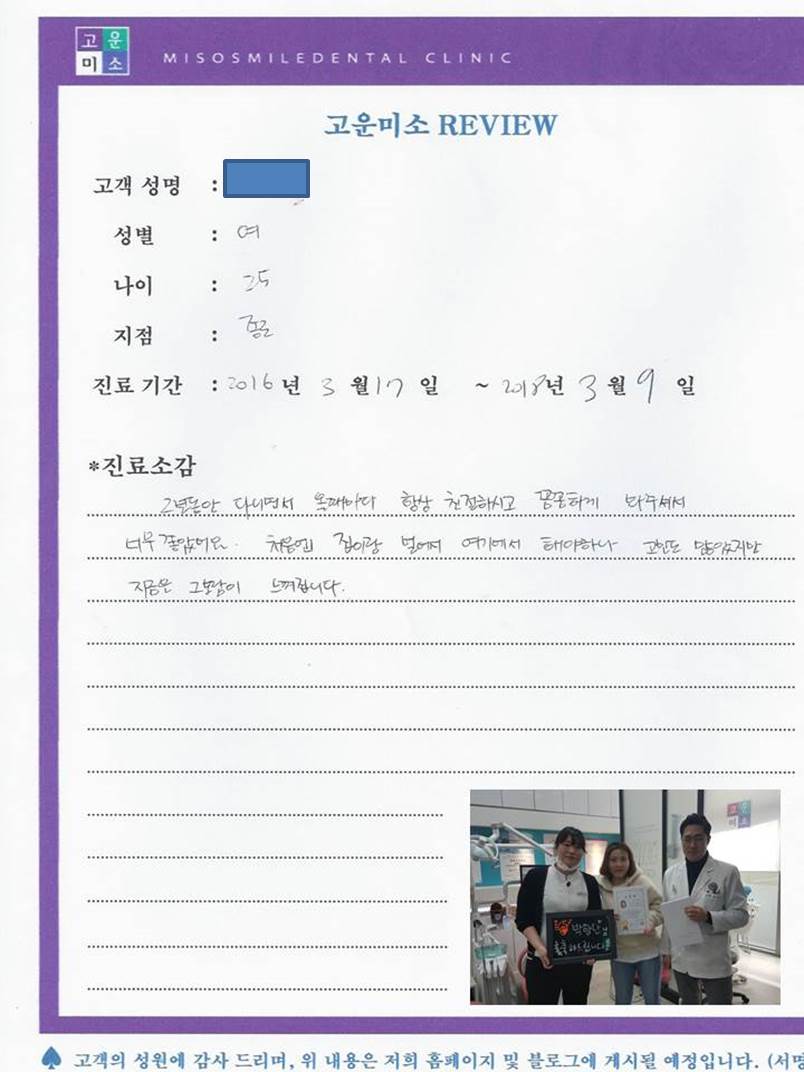 고운
미소
MISOSMILEDENTAL CLINIC
고운미소 REVIEW
고객 성명 :
성별 : 여
나이 : 25
지점 : 종로
진료 기간 : 2016 년 3 월 17 일 ~ 2018년 3 월 9 일
*진료소감
2년동안 다니면서 올때마다 항상 친절하시고 꼼꼼하게 봐주셔서
너무 좋았어요. 처음엔 집이랑 멀어서 여기에서 해야하나 고민도 많았지만
지금은 그보람이 느껴집니다.
고운
미소
님
축하드립니다
고객의 성원에 감사 드리며, 위 내용은 저희 홈페이지 및 블로그에 게시될 예정입니다. (서명